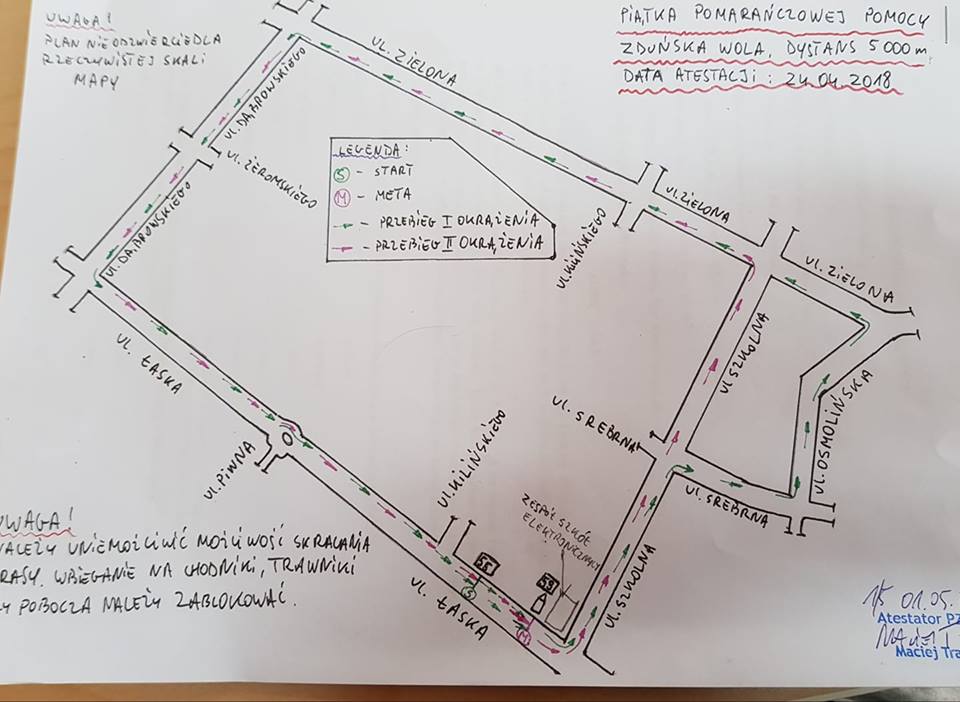 UWAGA!
PLAN NIE ODZWIERCIEDLA
RZECZYWISTEJ SKALI
MAPY
PIĄTKA POMARAŃCZOWEJ POMOCY
ZDUŃSKA WOLA, DYSTANS 5 000 m
DATA ATESTACJI : 24.04.2018
ul. ZIELONA
ul. DĄBROWSKIEGO
ul. ŻEROMSKIEGO
LEGENDA:
S - START
M - META
- PRZEBIEG I OKRĄŻENIA
- PRZEBIEG II OKRĄŻENIA
ul. ZIELONA
ul. KILIŃSKIEGO
ul. ZIELONA
ul. DĄBROWSKIEGO
ul. ŁASKA
ul. SZKOLNA
ul. OSMOLIŃSKA
ul. SREBRNA
ul. KILIŃSKIEGO
ul. PIWNA
ul. SREBRNA
ZESPÓŁ SZKÓŁ
ELEKTRONICZNYCH
UWAGA!
NALEŻY UNIEMOŻLIWIĆ MOŻLIWOŚĆ SKRACANIA
TRASY. WBIEGANIE NA CHODNIKI, TRAWNIKI
CZY POBOCZA NALEŻY ZABLOKOWAĆ.
55
S
59
M
ul. ŁASKA
ul. SZKOLNA
01.05.
Atestator PZ
Maciej Tra